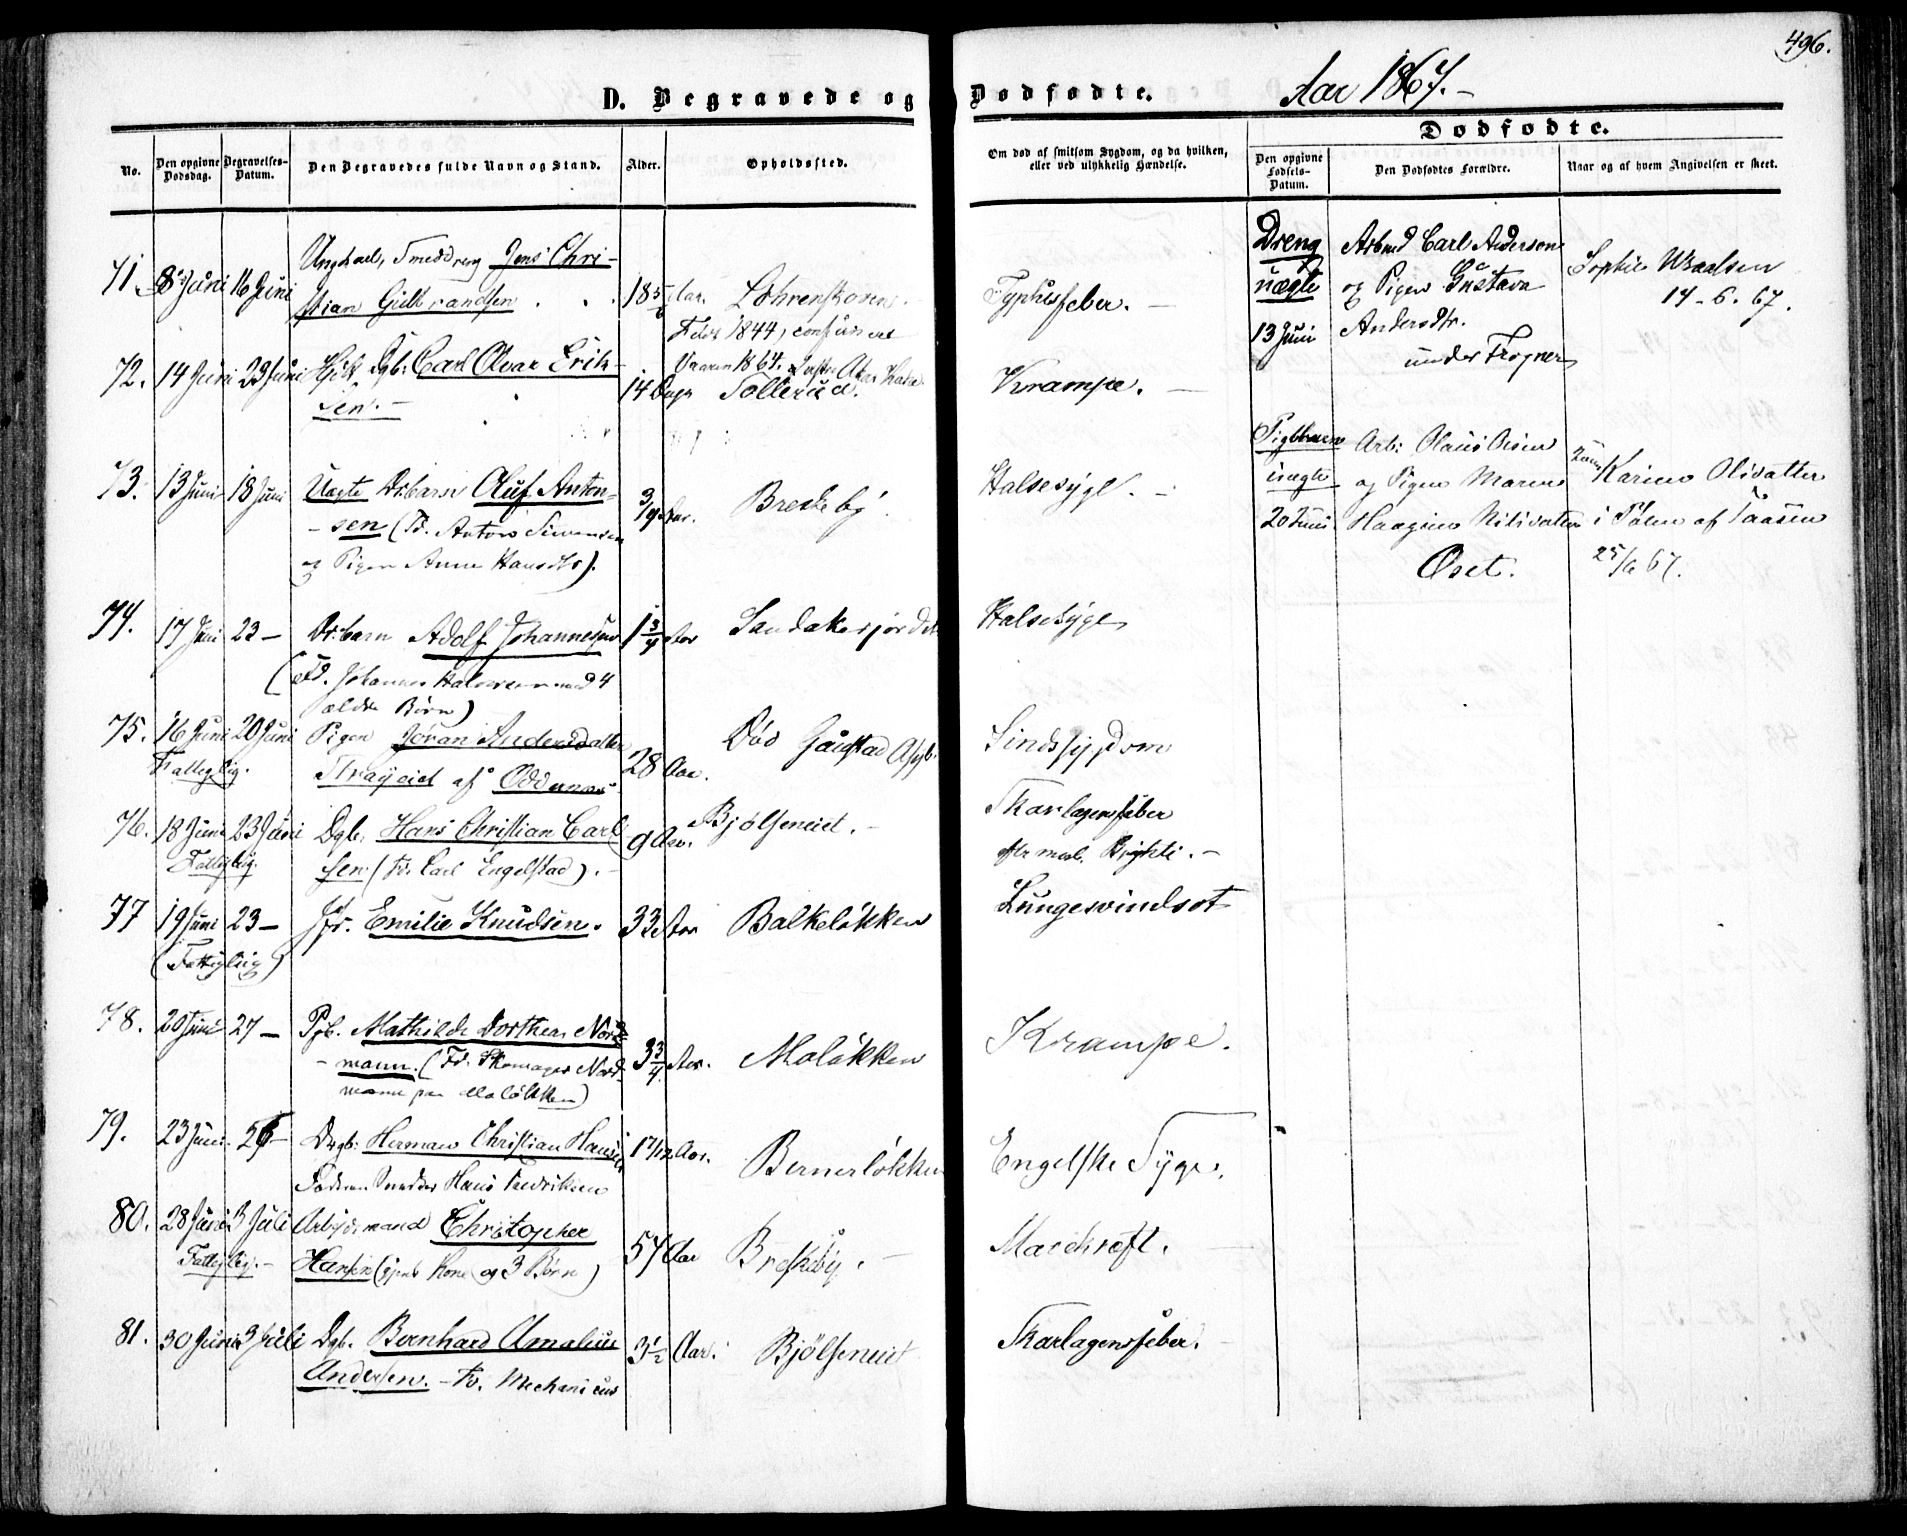 496.
D. Begravede og Dødfødte. Aar 1867.-
Dødfødte.
No.
Den opgivne Dødsdag.
Begravelses-Datum.
Den Begravedes fulde Navn og Stand.
Alder.
Opholdssted.
Om død af smitsom Sygdom, og da hvilken, eller ved ulykkelig Hændelse.
Den opgivne Fødsels-Datum.
Den Dødfødtes Forældre.
Naar og af hvem Angivelsen er skeet.
71. 8 Juni 16 Juni Ungkarl, Smeddreng Jens Chri-
stian Gulbrandsen 18 Aar. Typhusfeber. -
Født 1844, confirmeret
Vaaren 1864.
72. 14 Juni 23 Juni Dgb: Carl Olvar Erik-
sen. - 14 Dage Sollerud. Krampe. -
73. 13 Juni 18 Juni Uægte Drbarn Oluf Anton-
- sen (Fd. Anton Simensen
og Pigen Anne Hansdtr). 3/4 Aar. Breskeby. Halsesyge. -
74. 17 Juni 23 - Drbarn Adolf Johannesen 1 3/4 Aar Sandakerjordet Halsesyge
(Fd. Johannes Halvorsen med 4
ældre Børn)
75. 16 Juni 20 Juni Pigen Jøran Andersdatter
Fattiglig. af Oddernæs 28 Aar. Død Gaustad Asyl. Sindssygdom
76. 18 Juni 23 Juni Dgb. Hans Christian Carl
sen (Fd. Carl Engelstad). - 9 Aar. Bjølseneiet. - Skarlagensfeber
Fattiglig. Mb. Brighti. -
77 19 Juni 23 - Jfr. Emilie Knudsen. 33 Aar Balkeløkken Lungesvindsot
(Fattiglig)
78. 20 Juni 27 - Pgb. Mathilde Dorthea Nord-
- mann. (Fd. Skomager Nord-
mann paa Maløkken) 3 3/4 Aar. Maløkken Krampe.
79. 23 Juni Drgb: Herman Christian Hansen 1 7/12 Aar. Bernerløkken Engelske Syge.
Faderen Hans Fredriksen
80. 28 Juni 3 Juli Arbeidsmand Christopher
Hansen (Kone og 3 Børn) 57 Aar Breskeby. - Marekræft.
Fattiglig. -
81. 30 Juni 3 Juli Dgb. Bernhard Amalius
Andersen. - Fd. Mechanicus 3 1/2 Aar. Bjølseneiet Skarlagensfeber. -
Dreng
uægte
13 Juni
Arbmd Carl Anderson
og Pigen Gustava
Andersdtr.
under Frogner
Sophie
14-6. 67.
Pigebarn
uægte
20 Juni
Arb: Olaus Olsen
og Pigen Maren
Haagine Nilsdatter
Øset.
Karine Olsdatter
i Pålen af Taasen
25/6 67.